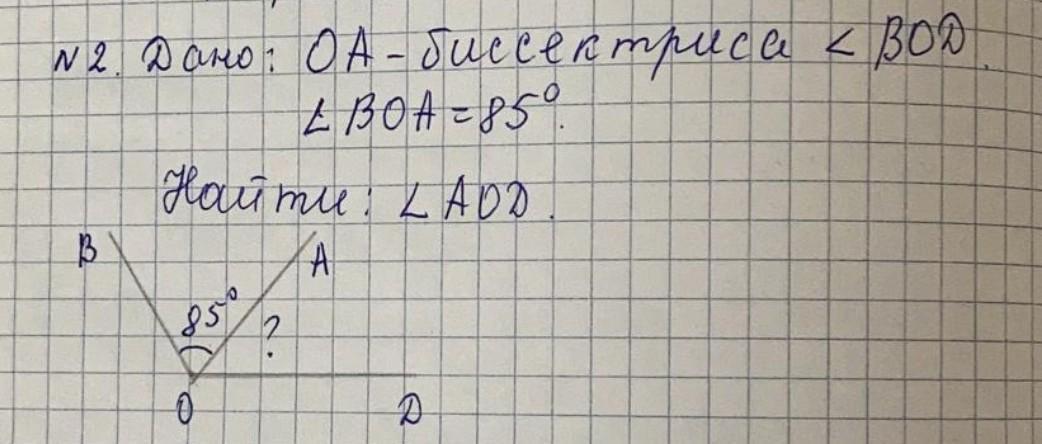 N2. Дано: OA - биссектриса < BOD.
∠BOA = 85°.
Найти: ∠AOD.
B
A
85°
?
O
D